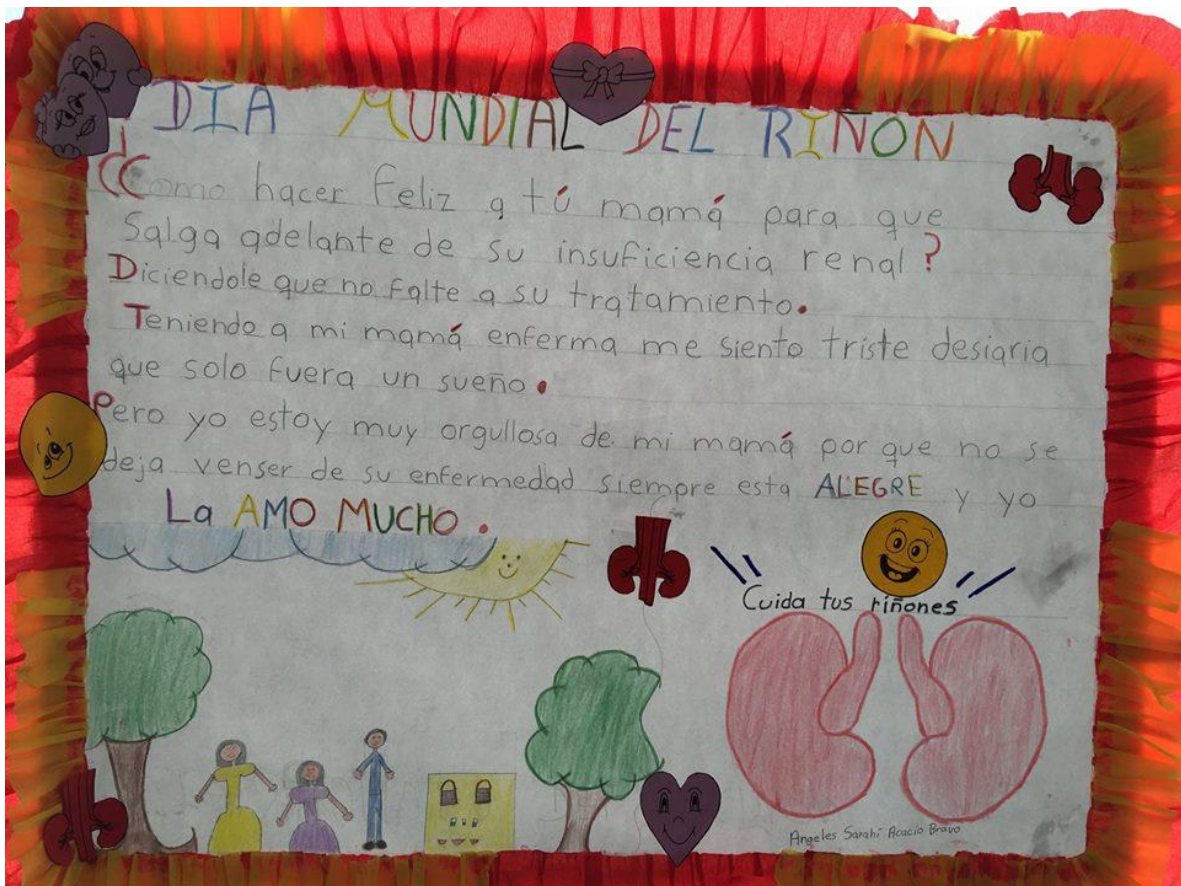 DIA MUNDIAL DEL RIÑON
¿Como hacer feliz a tú mamá para que
Salga adelante de su insuficiencia renal?
Diciendole que no falte a su tratamiento.
Teniendo a mi mamá enferma me siento triste desiaria
que solo fuera un sueño.
Pero yo estoy muy orgullosa de mi mamá por que no se
deja venser de su enfermedad siempre esta ALEGRE y yo
La AMO MUCHO.
Cuida tus riñones
Angeles Sarahí Acacio Bravo